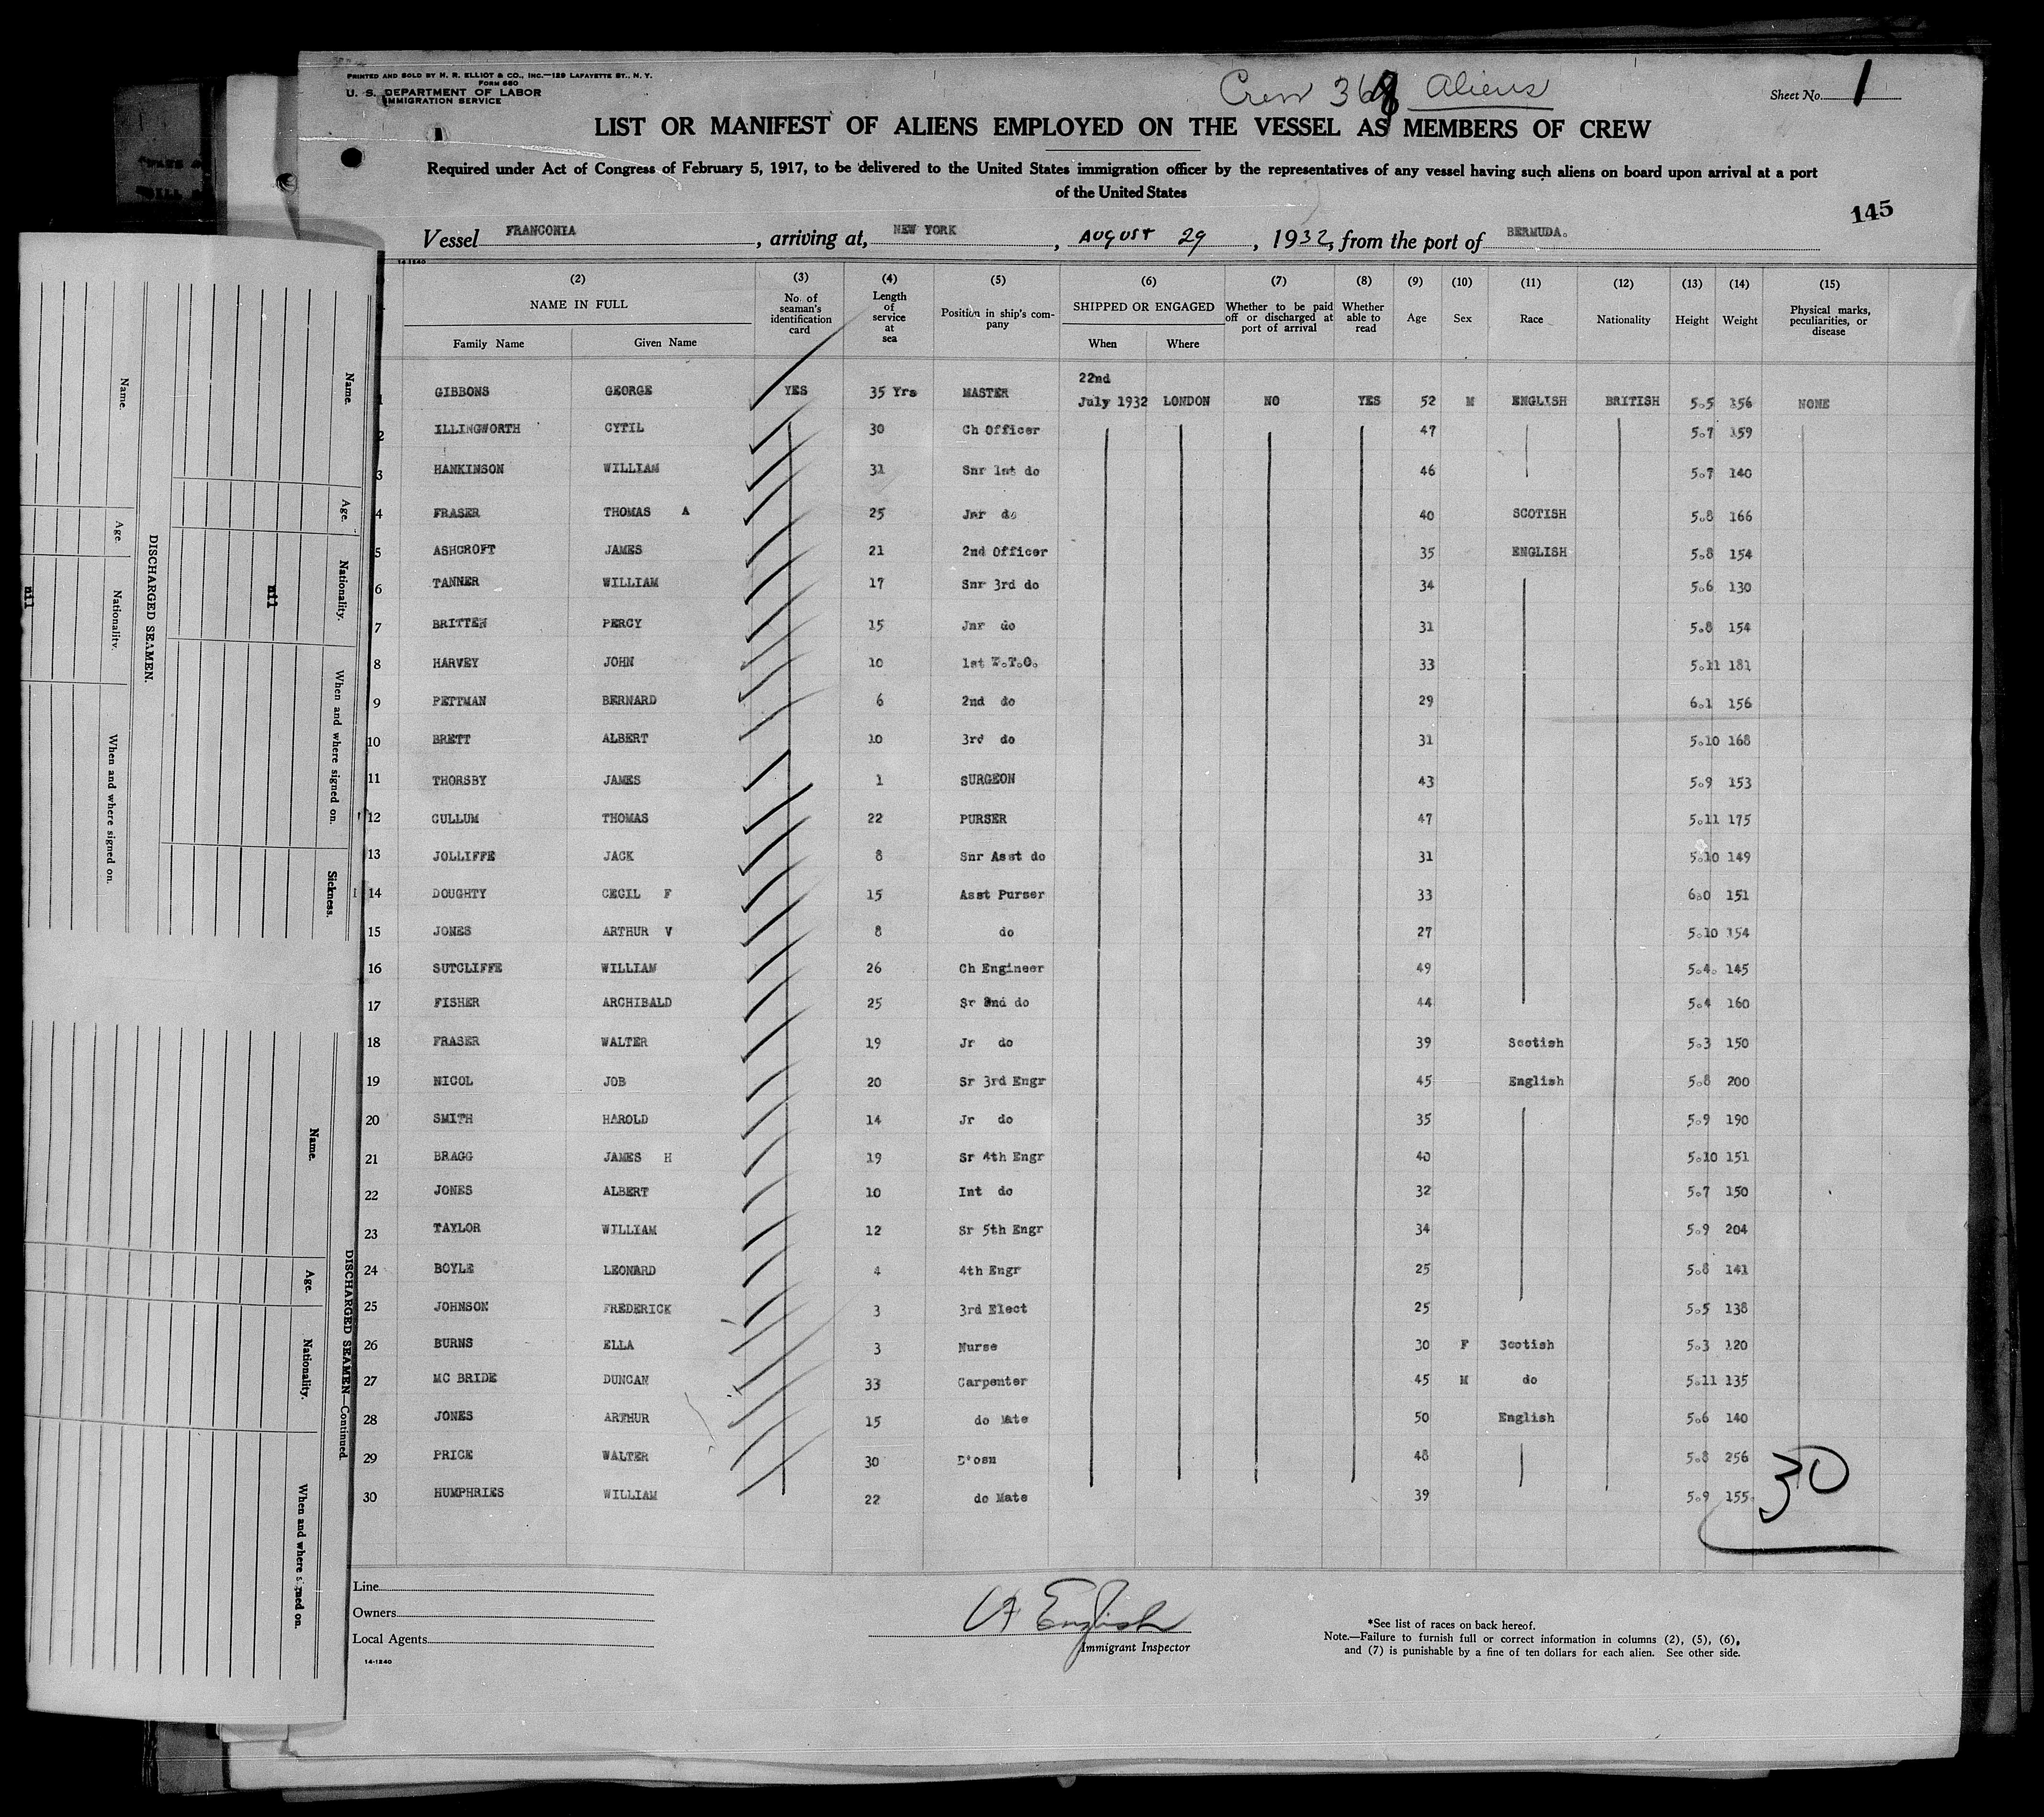 PRINTED AND SOLD BY H. R. ELLIOT & CO., INC.—129 LAFAYETTE ST., N. Y.
FORM 660
U. S. DEPARTMENT OF LABOR
IMMIGRATION SERVICE
Crew 368 Aliens
Sheet No. 1
LIST OR MANIFEST OF ALIENS EMPLOYED ON THE VESSEL AS MEMBERS OF CREW
Required under Act of Congress of February 5, 1917, to be delivered to the United States immigration officer by the representatives of any vessel having such aliens on board upon arrival at a port
of the United States
145
Vessel FRANCONIA, arriving at, NEW YORK, AUGUST 29, 1932, from the port of BERMUDA.
14-1240
(2) (3) (4) (5) (6) (7) (8) (9) (10) (11) (12) (13) (14) (15)
NAME IN FULL No. of seaman's identification card Length of service at sea Position in ship's company SHIPPED OR ENGAGED Whether to be paid off or discharged at port of arrival Whether able to read Age Sex Race Nationality Height Weight Physical marks, peculiarities, or disease
Family Name Given Name When Where
22nd
1 GIBBONS GEORGE YES 35 Yrs MASTER July 1932 LONDON NO YES 52 M ENGLISH BRITISH 5.5 156 NONE
2 ILLINGWORTH CYTIL 30 Ch Officer 47 5.7 159
3 HANKINSON WILLIAM 31 Snr 1st do 46 5.7 140
4 FRASER THOMAS A 25 Jnr do 40 SCOTISH 5.8 166
5 ASHCROFT JAMES 21 2nd Officer 35 ENGLISH 5.8 154
6 TANNER WILLIAM 17 Snr 3rd do 34 5.6 130
7 BRITTEN PERCY 15 Jnr do 31 5.8 154
8 HARVEY JOHN 10 1st W.T.O. 33 5.11 181
9 PETTMAN BERNARD 6 2nd do 29 6.1 156
10 BRETT ALBERT 10 3rd do 31 5.10 168
11 THORSBY JAMES 1 SURGEON 43 5.9 153
12 CULLUM THOMAS 22 PURSER 47 5.11 175
13 JOLLIFFE JACK 8 Snr Asst do 31 5.10 149
14 DOUGHTY CECIL F 15 Asst Purser 33 6.0 151
15 JONES ARTHUR V 8 do 27 5.10 154
16 SUTCLIFFE WILLIAM 26 Ch Engineer 49 5.4. 145
17 FISHER ARCHIBALD 25 Sr 2nd do 44 5.4 160
18 FRASER WALTER 19 Jr do 39 Scotish 5.3 150
19 NICOL JOB 20 Sr 3rd Engr 45 English 5.8 200
20 SMITH HAROLD 14 Jr do 35 5.9 190
21 BRAGG JAMES H 19 Sr 4th Engr 40 5.10 151
22 JONES ALBERT 10 Int do 32 5.7 150
23 TAYLOR WILLIAM 12 Sr 5th Engr 34 5.9 204
24 BOYLE LEONARD 4 4th Engr 25 5.8 141
25 JOHNSON FREDERICK 3 3rd Elect 25 5.5 138
26 BURNS ELLA 3 Nurse 30 F Scotish 5.3 120
27 MC BRIDE DUNCAN 33 Carpenter 45 M do 5.11 135
28 JONES ARTHUR 15 do Mate 50 English 5.6 140
29 PRICE WALTER 30 B'osn 48 5.8 256
30 HUMPHRIES WILLIAM 22 do Mate 39 5.9 155
30
Line
Owners
Local Agents
14-1240
English
Immigrant Inspector
*See list of races on back hereof.
Note.—Failure to furnish full or correct information in columns (2), (5), (6),
and (7) is punishable by a fine of ten dollars for each alien. See other side.
DISCHARGED SEAMEN.
Name. Age. Nationality. When and where signed on. Sickness.
nil
Name. Age. Nationality. When and where signed on.
nil
DISCHARGED SEAMEN—Continued
Name. Age. Nationality. When and where signed on.